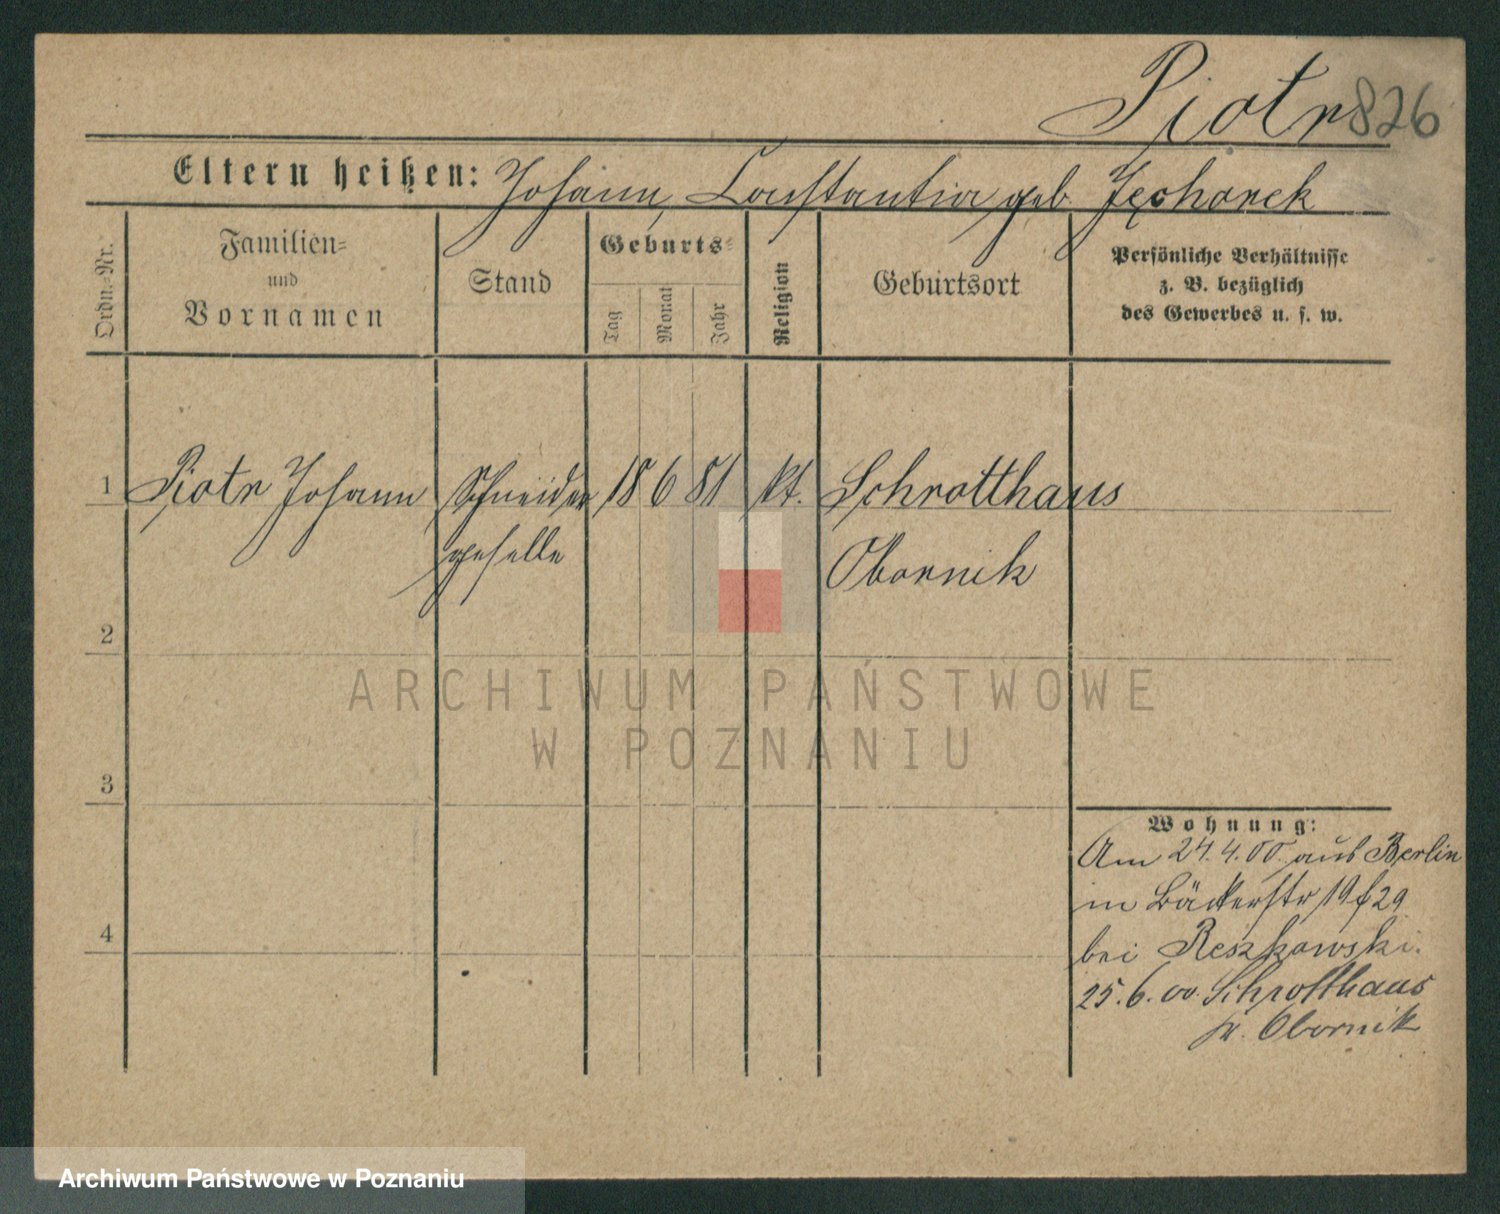 Piotr 826
Eltern heißen: Johann, Constantia geb. Jęchorek
Ordn.-Nr.
Familien-
und
Vornamen
Stand
Geburts-
Tag
Monat
Jahr
Religion
Geburtsort
Persönliche Verhältnisse
z. B. bezüglich
des Gewerbes u. s. w.
1 Piotr Johann Schneider 18 6 81 kt. Schrotthaus
geselle Obornik
2
ARCHIWUM PAŃSTWOWE
W POZNANIU
3
Wohnung:
Am 24.4.00. aus Berlin
in Bäckerstr 19 f 29
4
bei Reszkowski.
25.6.00. Schrotthaus
Obornik
Archiwum Państwowe w Poznaniu